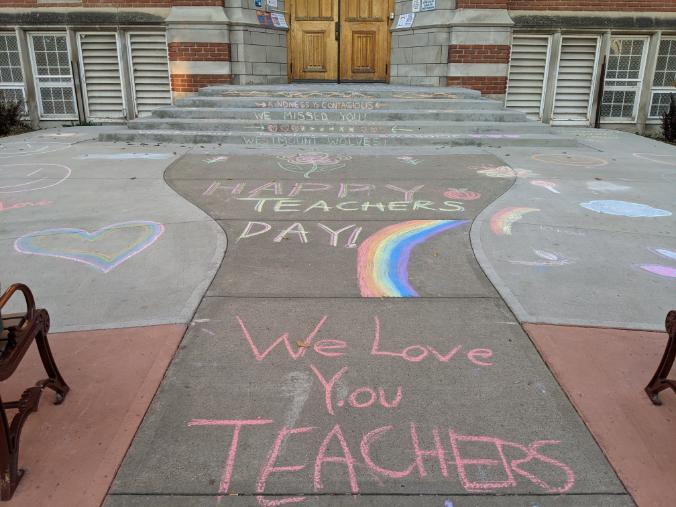 KINDNESS IS CONTAGIOUS
WE MISSED YOU!
WESTMOUNT WOLVES!
HAPPY
TEACHERS
DAY!
Love
We Love
You
TEACHERS